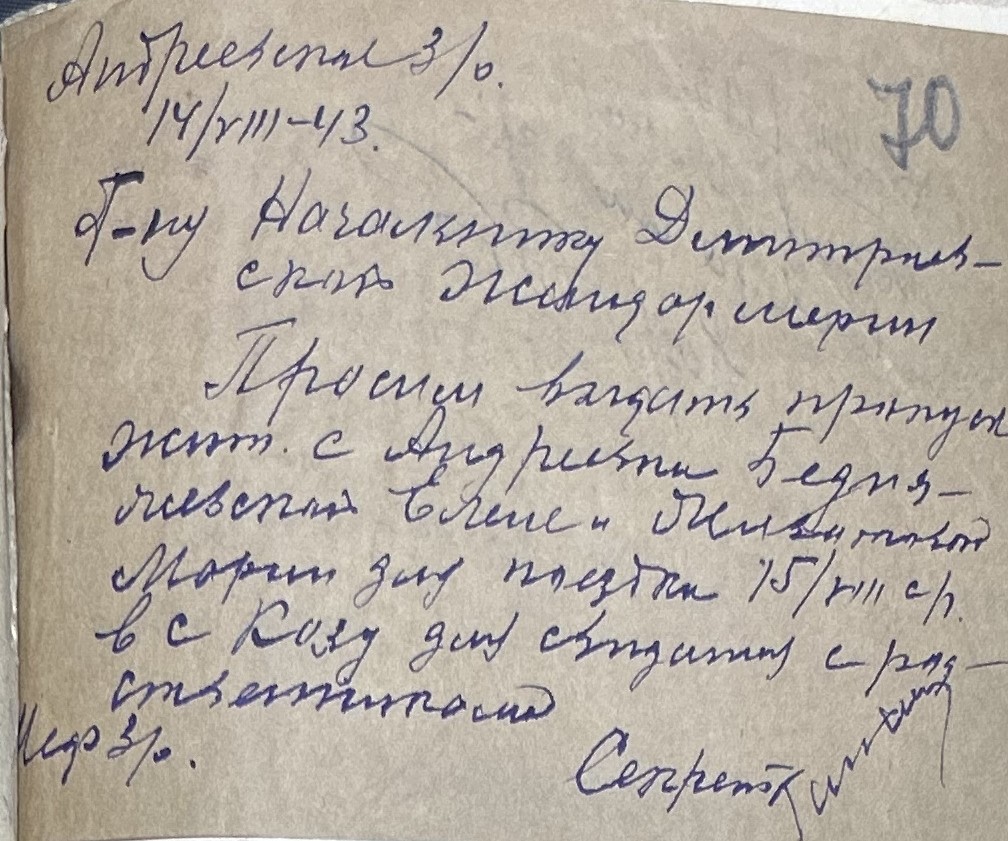 Андреевская З/о.
14/VIII-43.
70
Г-ну Начальнику Дмитриев-
ской Жандармерии
Просим выдать пропуск
жит. с Андреевки Бедня-
чевской Елене и
Марии для поездки 15/VIII с/г.
в с Козу для свидания с род-
ственниками
З/о.
Секрет.